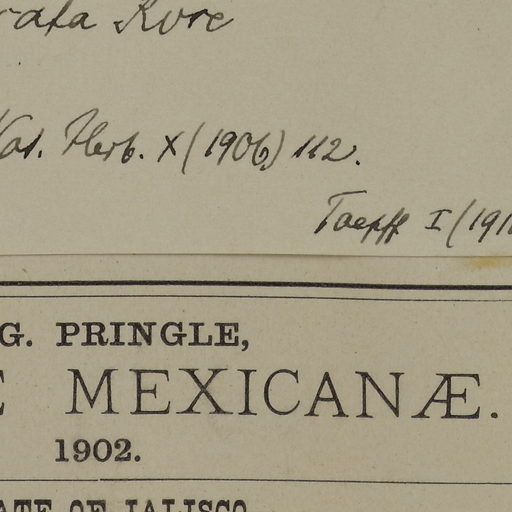 Rose
Nat. Herb. X (1906) 112.
Toepff I (191
G. PRINGLE,
E MEXICANÆ.
1902.
ATE OF JALISCO